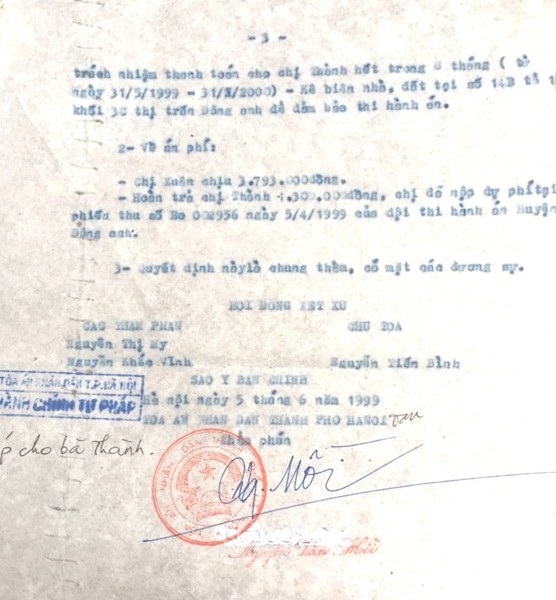 - 3 -
trách nhiệm thanh toán cho chị Thành hết trong 8 tháng ( từ
ngày 31/5/1999 - 31/ /2000) - Kê biên nhà, đất tại số 14B tổ
khối 3C thị trấn Đông anh để đảm bảo thi hành án.
2- Về án phí:
- Chị Xuân chịu 3.793.000đồng.
- Hoàn trả chị Thành 1.300.000đồng, chị đã nộp dự phítại
phiếu thu số Bo 002956 ngày 5/4/1999 của đội thi hành án Huyện
Đông anh.
3- Quyết định nàylà chung thẩm, có mặt các đương sự.
HỘI ĐỒNG XÉT XỬ
CAC THAM PHAN CHU TOA
Nguyễn Thị My
Nguyễn Khắc Vĩnh Nguyễn Tiến Bình
TÒA ÁN NHÂN DÂN T.P.HÀ NỘI
HÀNH CHÍNH TƯ PHÁP
SAO Y BAN CHINH
Hà nội ngày 5 tháng 6 năm 1999
TOA AN NHAN DAN THANH PHO HANOI
thẩm phán
p cho bà Thành.
Mỗi
Nguyễn Văn Mỗi